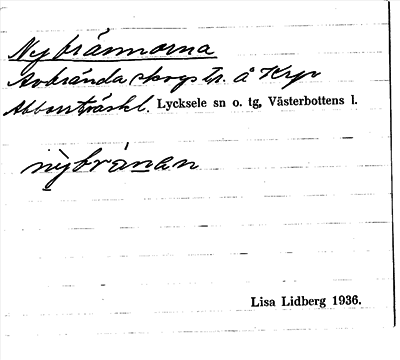 Nybrännorna
Avbrända skogstr. å Krp
Abborrträskl. Lycksele sn o. tg, Västerbottens l.
nỳbránan
Lisa Lidberg 1936.